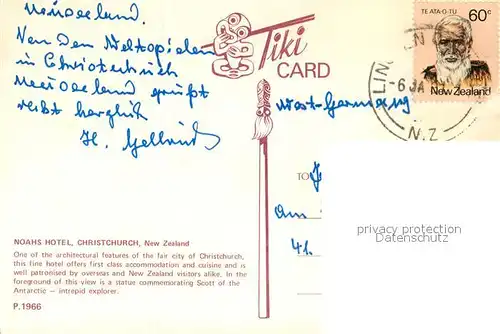 Neuseeland.
Von Den Weltspielen
in Christchurch
Neuseeland grüßt
recht herzlich
H.
Tiki
CARD
TE ATA-O-TU
60c
New Zealand
-6 JA
N.Z
West-Germany
TO
Am
41.
privacy protection
Datenschutz
NOAHS HOTEL, CHRISTCHURCH, New Zealand
One of the architectural features of the fair city of Christchurch,
this fine hotel offers first class accommodation and cuisine and is
well patronised by overseas and New Zealand visitors alike. In the
foreground of this view is a statue commemorating Scott of the
Antarctic – intrepid explorer.
P.1966